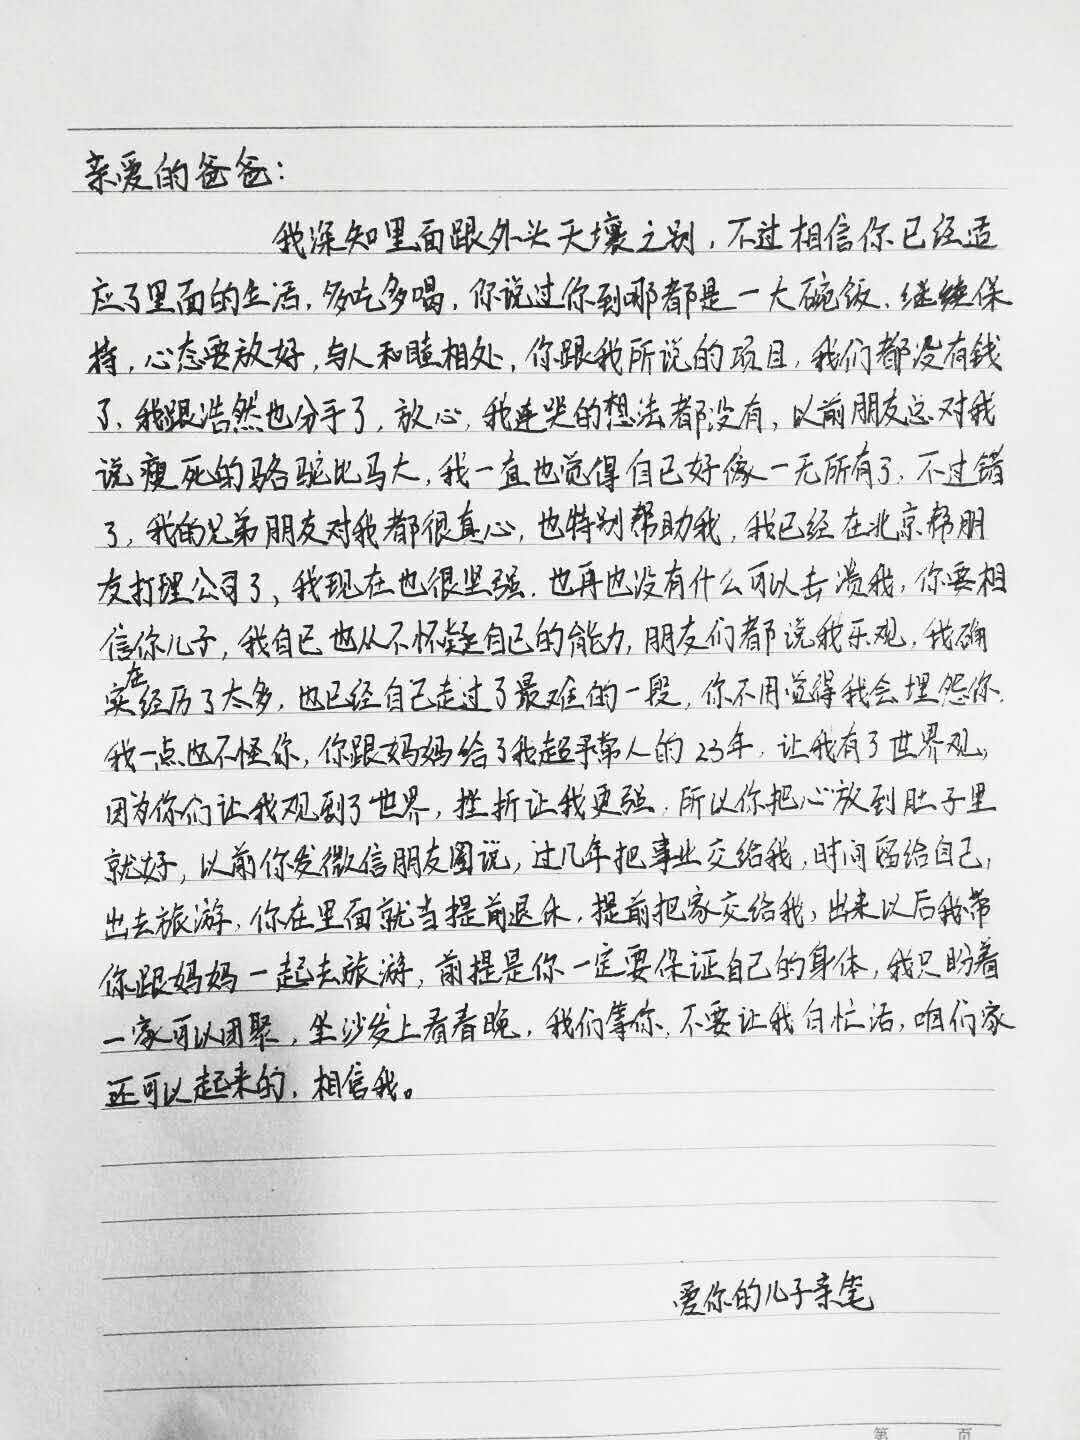 亲爱的爸爸:
我深知里面跟外头天壤之别,不过相信你已经适
应了里面的生活,多吃多喝,你说过你到哪都是一大碗饭,继续保
持,心态要放好,与人和睦相处,你跟我所说的项目,我们都没有钱
了,我跟浩然也分手了,放心,我连哭的想法都没有,以前朋友总对我
说瘦死的骆驼比马大,我一直也觉得自己好像一无所有了,不过错
了,我的兄弟朋友对我都很真心,也特别帮助我,我已经在北京帮朋
友打理公司了,我现在也很坚强.也再也没有什么可以击溃我,你要相
信你儿子,我自己也从不怀疑自己的能力,朋友们都说我乐观,我确
实在经历了太多,也已经自己走过了最难的一段,你不用觉得我会埋怨你.
我一点也不怪你,你跟妈妈给了我超乎常人的23年.让我有了世界观,
因为你们让我观到了世界,挫折让我更强.所以你把心放到肚子里
就好,以前你发微信朋友圈说,过几年把事业交给我,时间留给自己,
出去旅游,你在里面就当提前退休,提前把家交给我,出来以后我带
你跟妈妈一起去旅游,前提是你一定要保证自己的身体,我只盼着
一家可以团聚,坐沙发上看春晚,我们等你.不要让我白忙活,咱们家
还可以起来的,相信我。
爱你的儿子亲笔
第 页